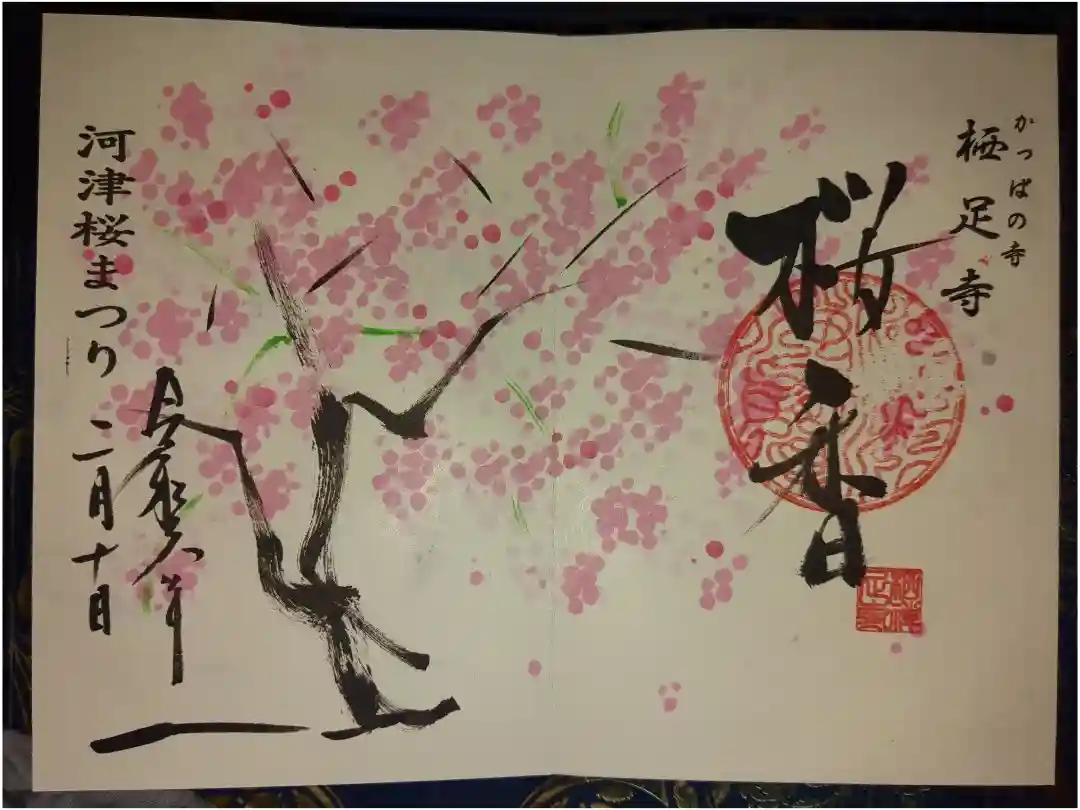 かっぱの寺
栖足寺
桜香
河津桜まつり
二月十日